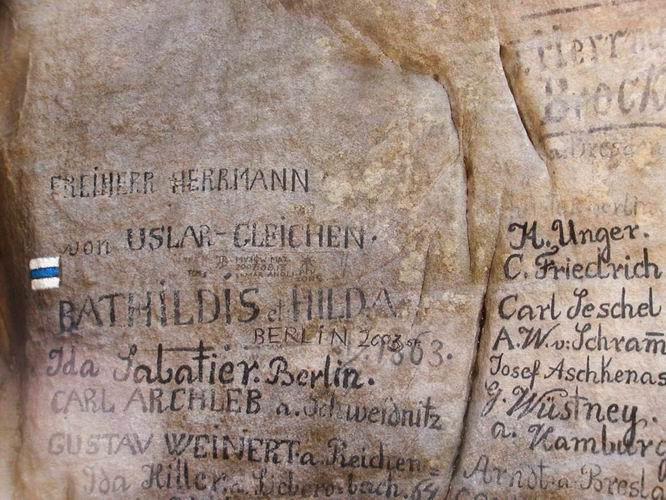 FREIHERR HERRMANN
von USLAR-GLEICHEN.
BATHILDIS et HILDA
BERLIN 1863.
Ida Sabatier. Berlin.
CARL ARCHLEB a. Schweidnitz
GUSTAV WEINERT. a. Reichen=
Ida Hiller. a.
Brock
a. Dresd
H. Unger.
C. Friedrich
Carl Seschel
A. W. v. Schram
Josef Aschkenas
G. Wüstney.
a. Hamburg
Arndt a. Bresl